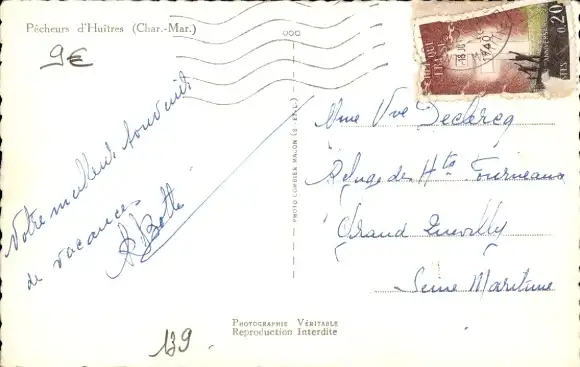 Pêcheurs d'Huîtres (Char.-Mar.)
9€
0,20
Votre meilleur souvenir
de vacances
Mme Vve Declercq
Refuge de Hte Tourneaux
Grand Quevilly
Seine Maritime
PHOTO COMBIER MACON (S.-ET-L.)
PHOTOGRAPHIE VÉRITABLE
Reproduction Interdite
139